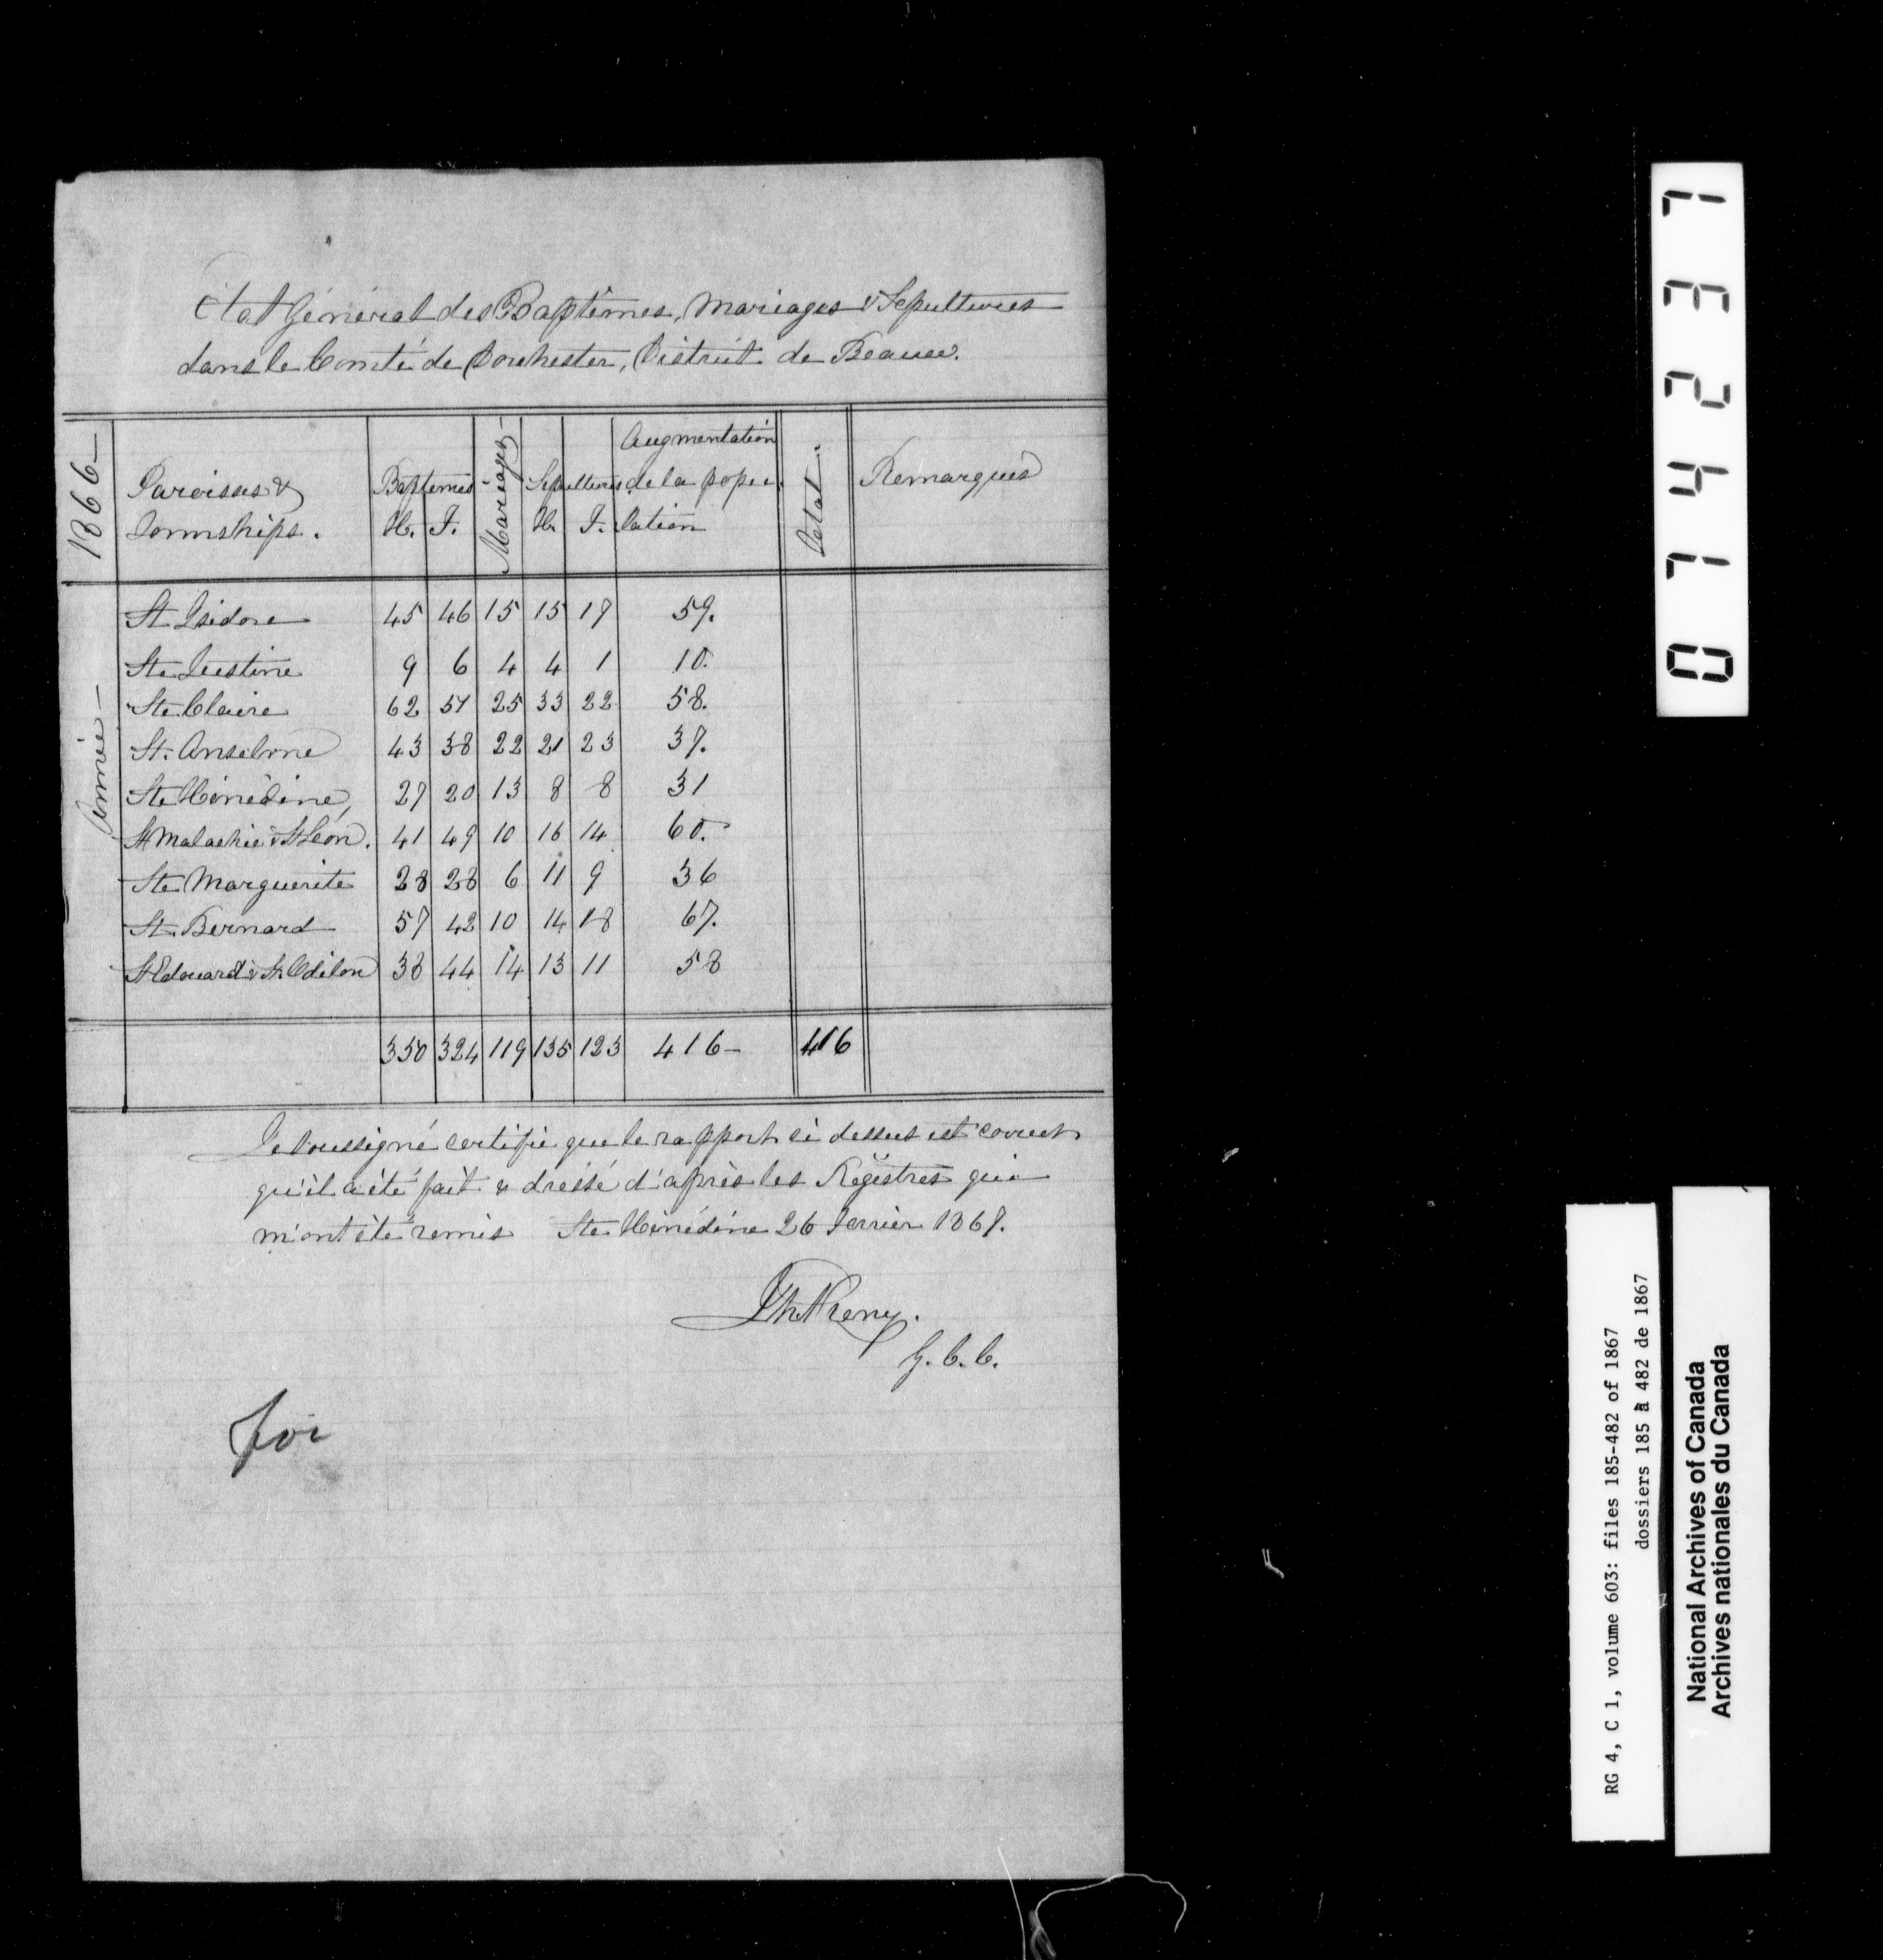 Etat Général des Baptêmes, Mariages & Sepultures
dans le Comté de Dorchester, District de Beauce.
1866 —
Année —
Paroisses &
Townships.
Baptemes
H. F.
Mariages —
Sepultures
H. F.
Augmentation
de la popu
lation
Total.
Remarques
St Isidore 45 46 15 15 17 59.
Ste Justine 9 6 4 4 1 10.
Ste Claire 62 51 25 33 22 58.
St. Anselme 43 38 22 21 23 37.
Ste Hénédine, 27 20 13 8 8 31
St Malachie & St Léon. 41 49 10 16 14 60.
Ste Marguerite 28 28 6 11 9 36
St. Bernard 57 42 10 14 18 67.
St Edouard & St. Odilon 38 44 14 13 11 58
350 324 119 135 123 416 — 416
Je soussigné certifie que le rapport ci dessus est correct
qu'il a été fait & dressé d'après les Régistres qui
m'ont été remis Ste Hénédine 26 Janvier 1867.
G. C. C.
for
074237
RG 4, C 1, volume 603: files 185-482 of 1867
dossiers 185 à 482 de 1867
National Archives of Canada
Archives nationales du Canada